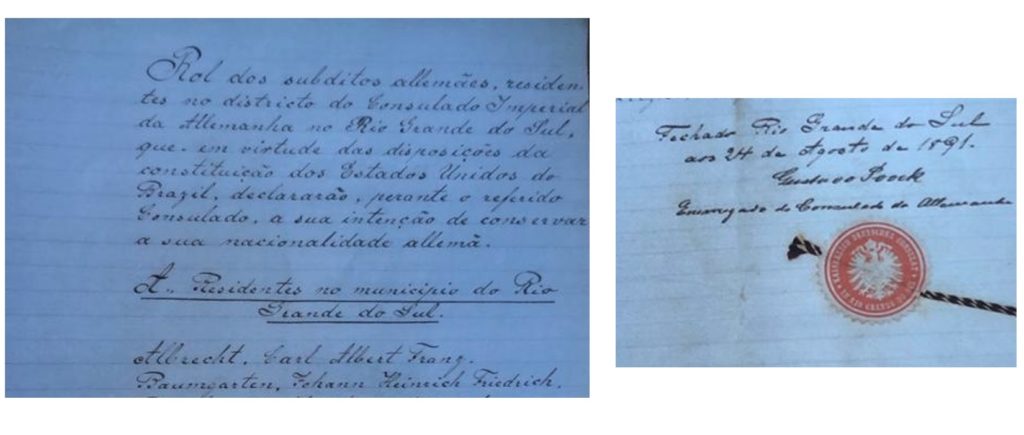 Rol dos subditos allemães, residen-
tes no districto do Consulado Imperial
da Allemanha no Rio Grande do Sul,
que em virtude das disposições da
constituição dos Estados Unidos do
Brazil, declararão, perante o referido
Consulado, a sua intenção de conservar
a sua nacionalidade allemã.
A.. Residentes no municipio do Rio
Grande do Sul.
Albrecht, Carl Albert Franz.
Baumgarten, Johann Heinrich Friedrich.
Fechado Rio Grande do Sul
aos 24 de Agosto de 1891.
Gustavo Poock
Encarregado do Consulado da Allemanha
KAISERLICH DEUTSCHES CONSULAT
RIO GRANDE DO SUL